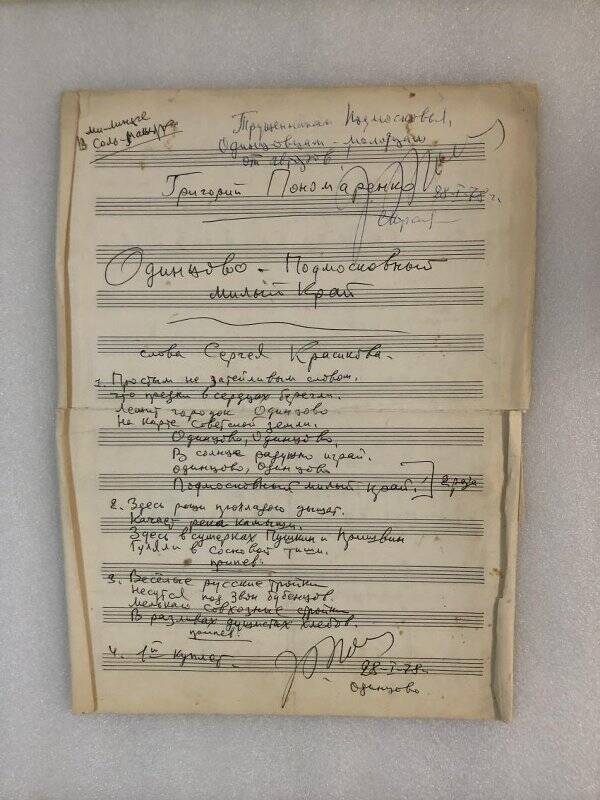 ми-миноре
в Соль-мажоре
Труженикам Подмосковья,
Одинцовцам - молодцам
от авторов
Григорий Пономаренко
28-I-78 г.
Одинцово - Подмосковный
милый Край
слова Сергея Красикова.
1. Простым не затейливым словом,
что предки в сердцах берегли.
Лежит городок Одинцово
На карте Советской земли.
Одинцово, Одинцово,
В солнце радужно играй.
Одинцово, Одинцово
Подмосковный милый край.] 2 раза
2. Здесь рощи прохладою дышат.
Качает река камыши.
Здесь в сумерках Пушкин и Пришвин
Гуляли в сосновой тиши.
припев.
3. Весёлые русские тройки
Несутся под звон бубенцов.
Мелькают совхозные стройки
В разливах душистых хлебов.
припев.
4. 1ый куплет.
28-I-78 г.
Одинцово